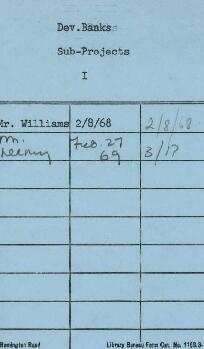 Dev.Banks
Sub-Projects
I
Mr. Williams 2/8/68 2/8/68
M. Feb. 27 3/17
69
Remington Rand Library Bureau Form Cat. No. 1169.3-